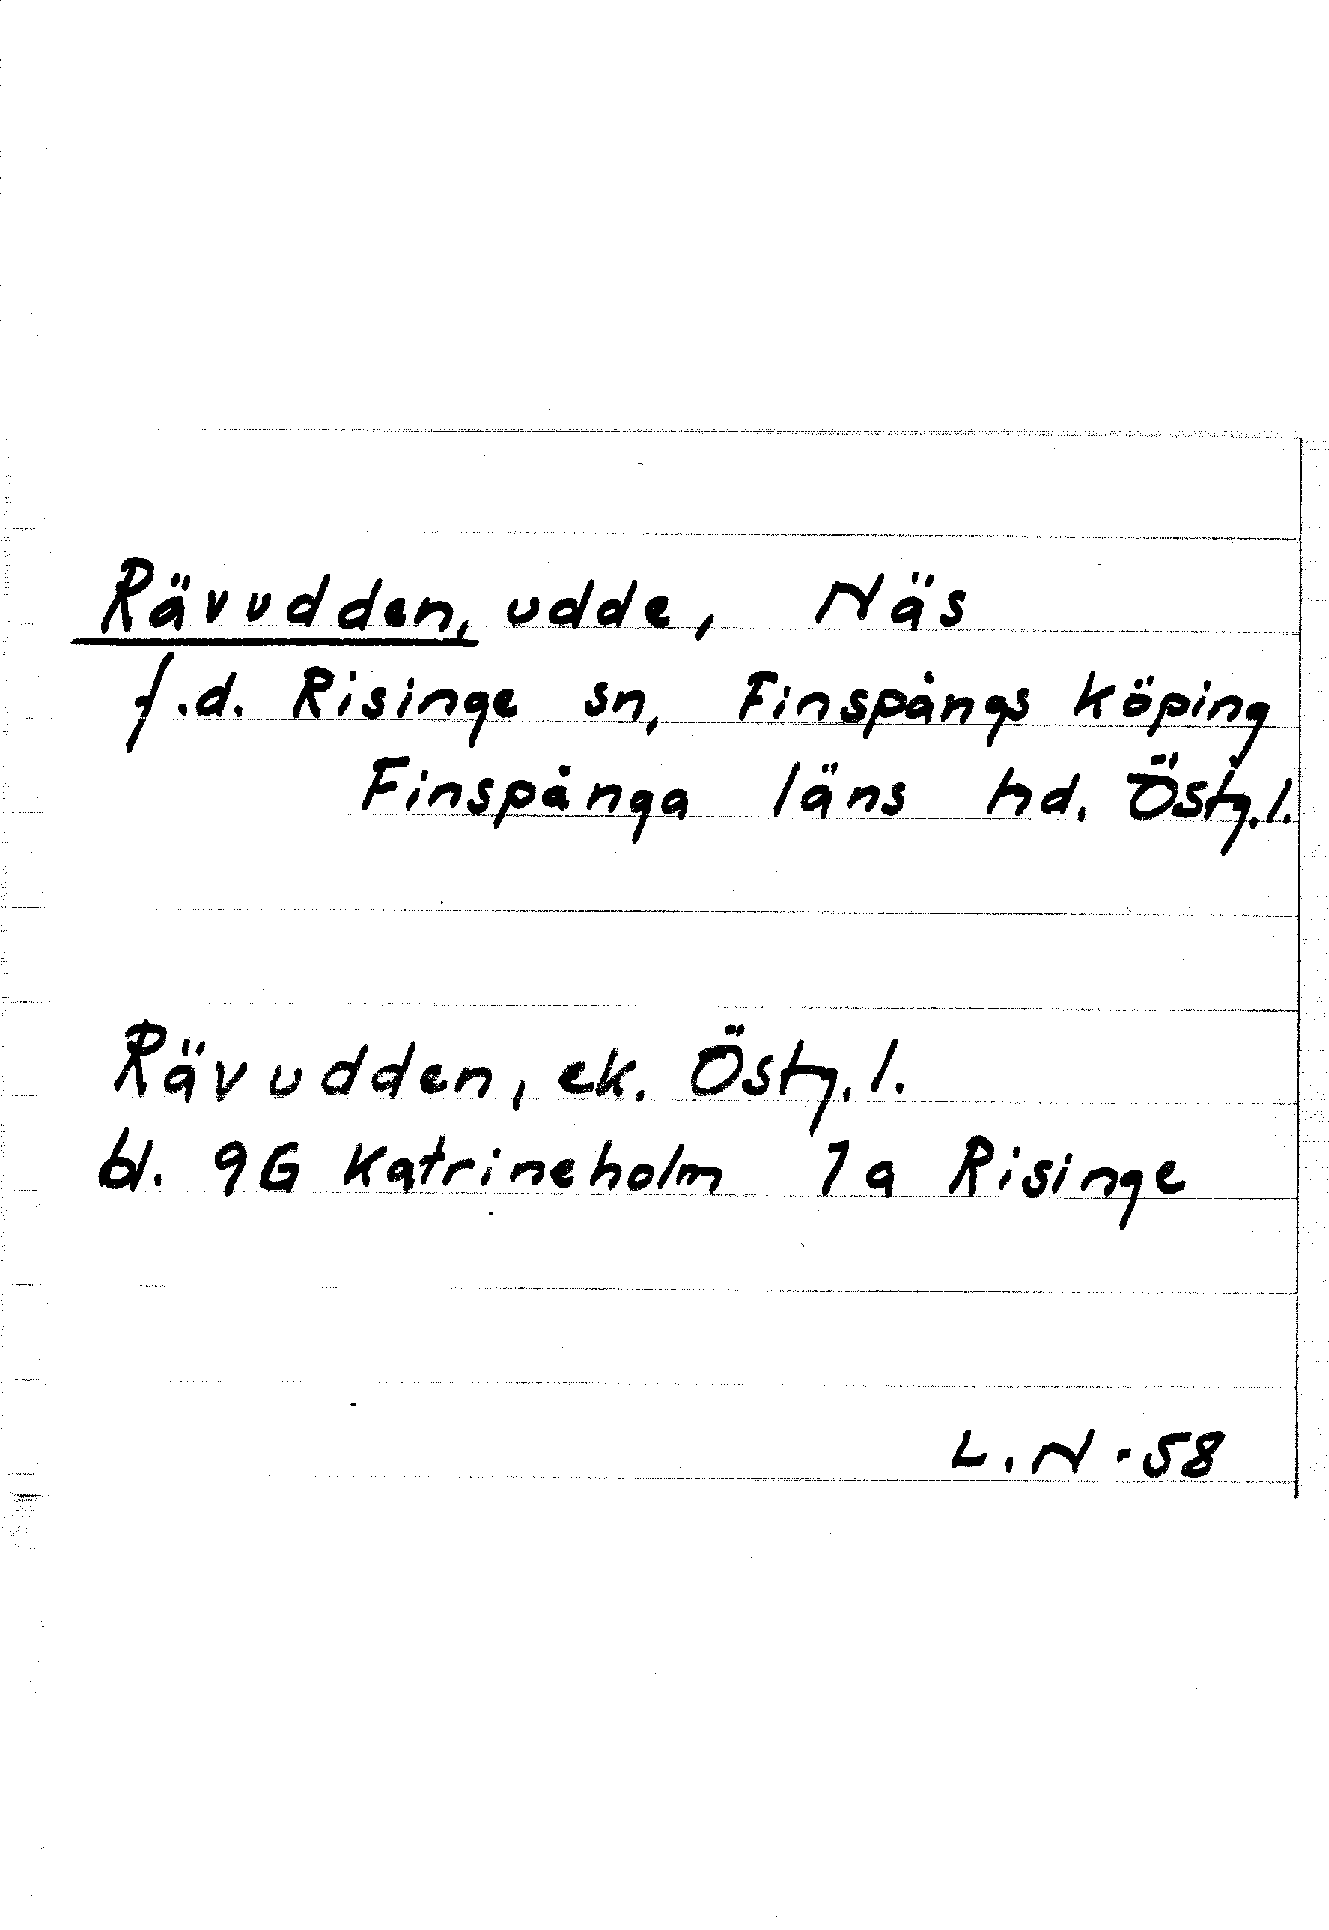 Rävudden, udde, Näs
f.d. Risinge sn, Finspångs köping
Finspånga läns hd. Östg.l.
Rävudden, ek. Östg.l.
bl. 9G Katrineholm 7a Risinge
L.N -58